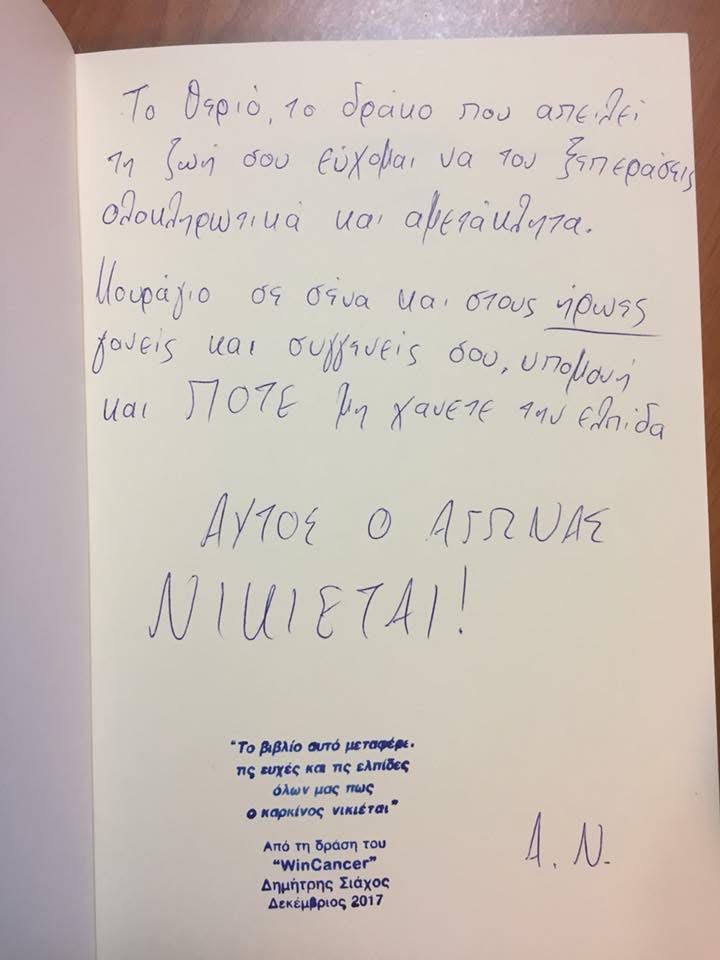 Το θεριό, το δράκο που απειλεί
τη ζωή σου εύχομαι να τον ξεπεράσεις
ολοκληρωτικά και αμετάκλητα.
Κουράγιο σε σένα και στους ήρωες
γονείς και συγγενείς σου, υπομονή
και ΠΟΤΕ μη χάνετε την ελπίδα
ΑΥΤΟΣ Ο ΑΓΩΝΑΣ
ΝΙΚΙΕΤΑΙ!
"Το βιβλίο αυτό μεταφέρει
τις ευχές και τις ελπίδες
όλων μας πως
ο καρκίνος νικιέται"
Από τη δράση του
"WinCancer"
Δημήτρης Σιάχος
Δεκέμβριος 2017
Α. Ν.